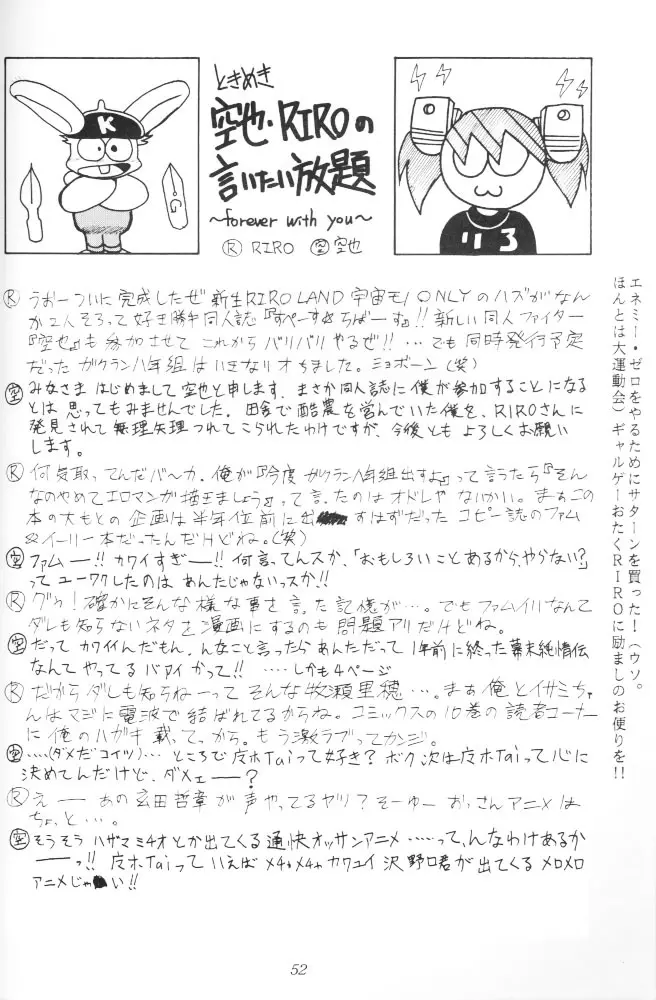 K
G
ときめき
空也・RIROの
言いたい放題
〜forever with you〜
Ⓡ RIRO ㊢空也
リろ
Ⓡ うおーついに完成したぜ 新生RIRO LAND 宇宙モノONLYのハズがなん
か2人そろって好き勝手同人誌『すぺーす☆ちばーす』!! 新しい同人ファイター
『空也』も参加させて これからバリバリやるぜ!! …でも同時発行予定
だった ガクラン八年組はいきなりオちました。ショボーン(笑)
空 みなさま はじめまして 空也と申します、まさか同人誌に僕が参加することになる
とは 思ってもみませんでした。田舎で酪農を営んでいた僕を、RIROさんに
発見されて無理矢理つれてこられたわけですが、今後とも よろしくお願い
します。
Ⓡ 何気取ってんだバ〜カ。俺が『今度 ガクラン八年組出すよ』って言うたら『そん
なのやめてエロマンガ描きましょう』って言ったのはオドレや ないかい。まずこの
本の大もとの 企画は半年位前に出すはずだった コピー誌のファム
&イーリー本だったんだけどね。(笑)
空 ファムー!! カワイすぎー!! 何言ってんスか、「おもしろいことあるから、やらない?」
って ユーワクしたのは あんたじゃないっスか!!
Ⓡ グゥ!確かにそんな様な事を言った記憶が…。でもファムイリなんて
ダレも知らないネタを漫画にするのも 問題アリだけどね。
空 だって カワイんだもん、んなこと言ったらあんただって 1年前に終った幕末純情伝
なんてやってる バァイ かって!! ……しかも4ページ
Ⓡ だからダレも知らねーって そんな牧瀬里穂…。まず俺とイサミちゃ
んはマジに電波で結ばれてるからね。コミックスの10巻の読者コーナー
に俺のハガキ載ってっから。もう激ラブってカンジ。
空 ……(ダメだコイツ)… ところで 広ホTaiって好き? ボク次は広ホTaiって心に
決めてんだけど、ダメェー?
Ⓡ えー あの玄田哲章が声やってるヤツ? そーゆー おっさんアニメは
ちょっと…。
空 そうそう ハザマミチオとか出てくる 通快オッサンアニメ ……って、んなわけあるか
ーっ!! 広ホTaiって いえば メチャメチャ カワユイ 沢野口君が出てくる メロメロ
アニメじゃい!!
エネミー・ゼロをやるためにサターンを買った!(ウソ。
ほんとは大運動会)ギャルゲーおたくRIROに励ましのお便りを!!
52